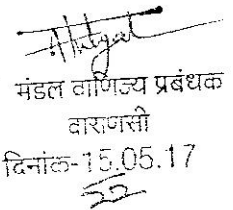 मंडल वाणिज्य प्रबंधक
वाराणसी
दिनांक-15.05.17
22